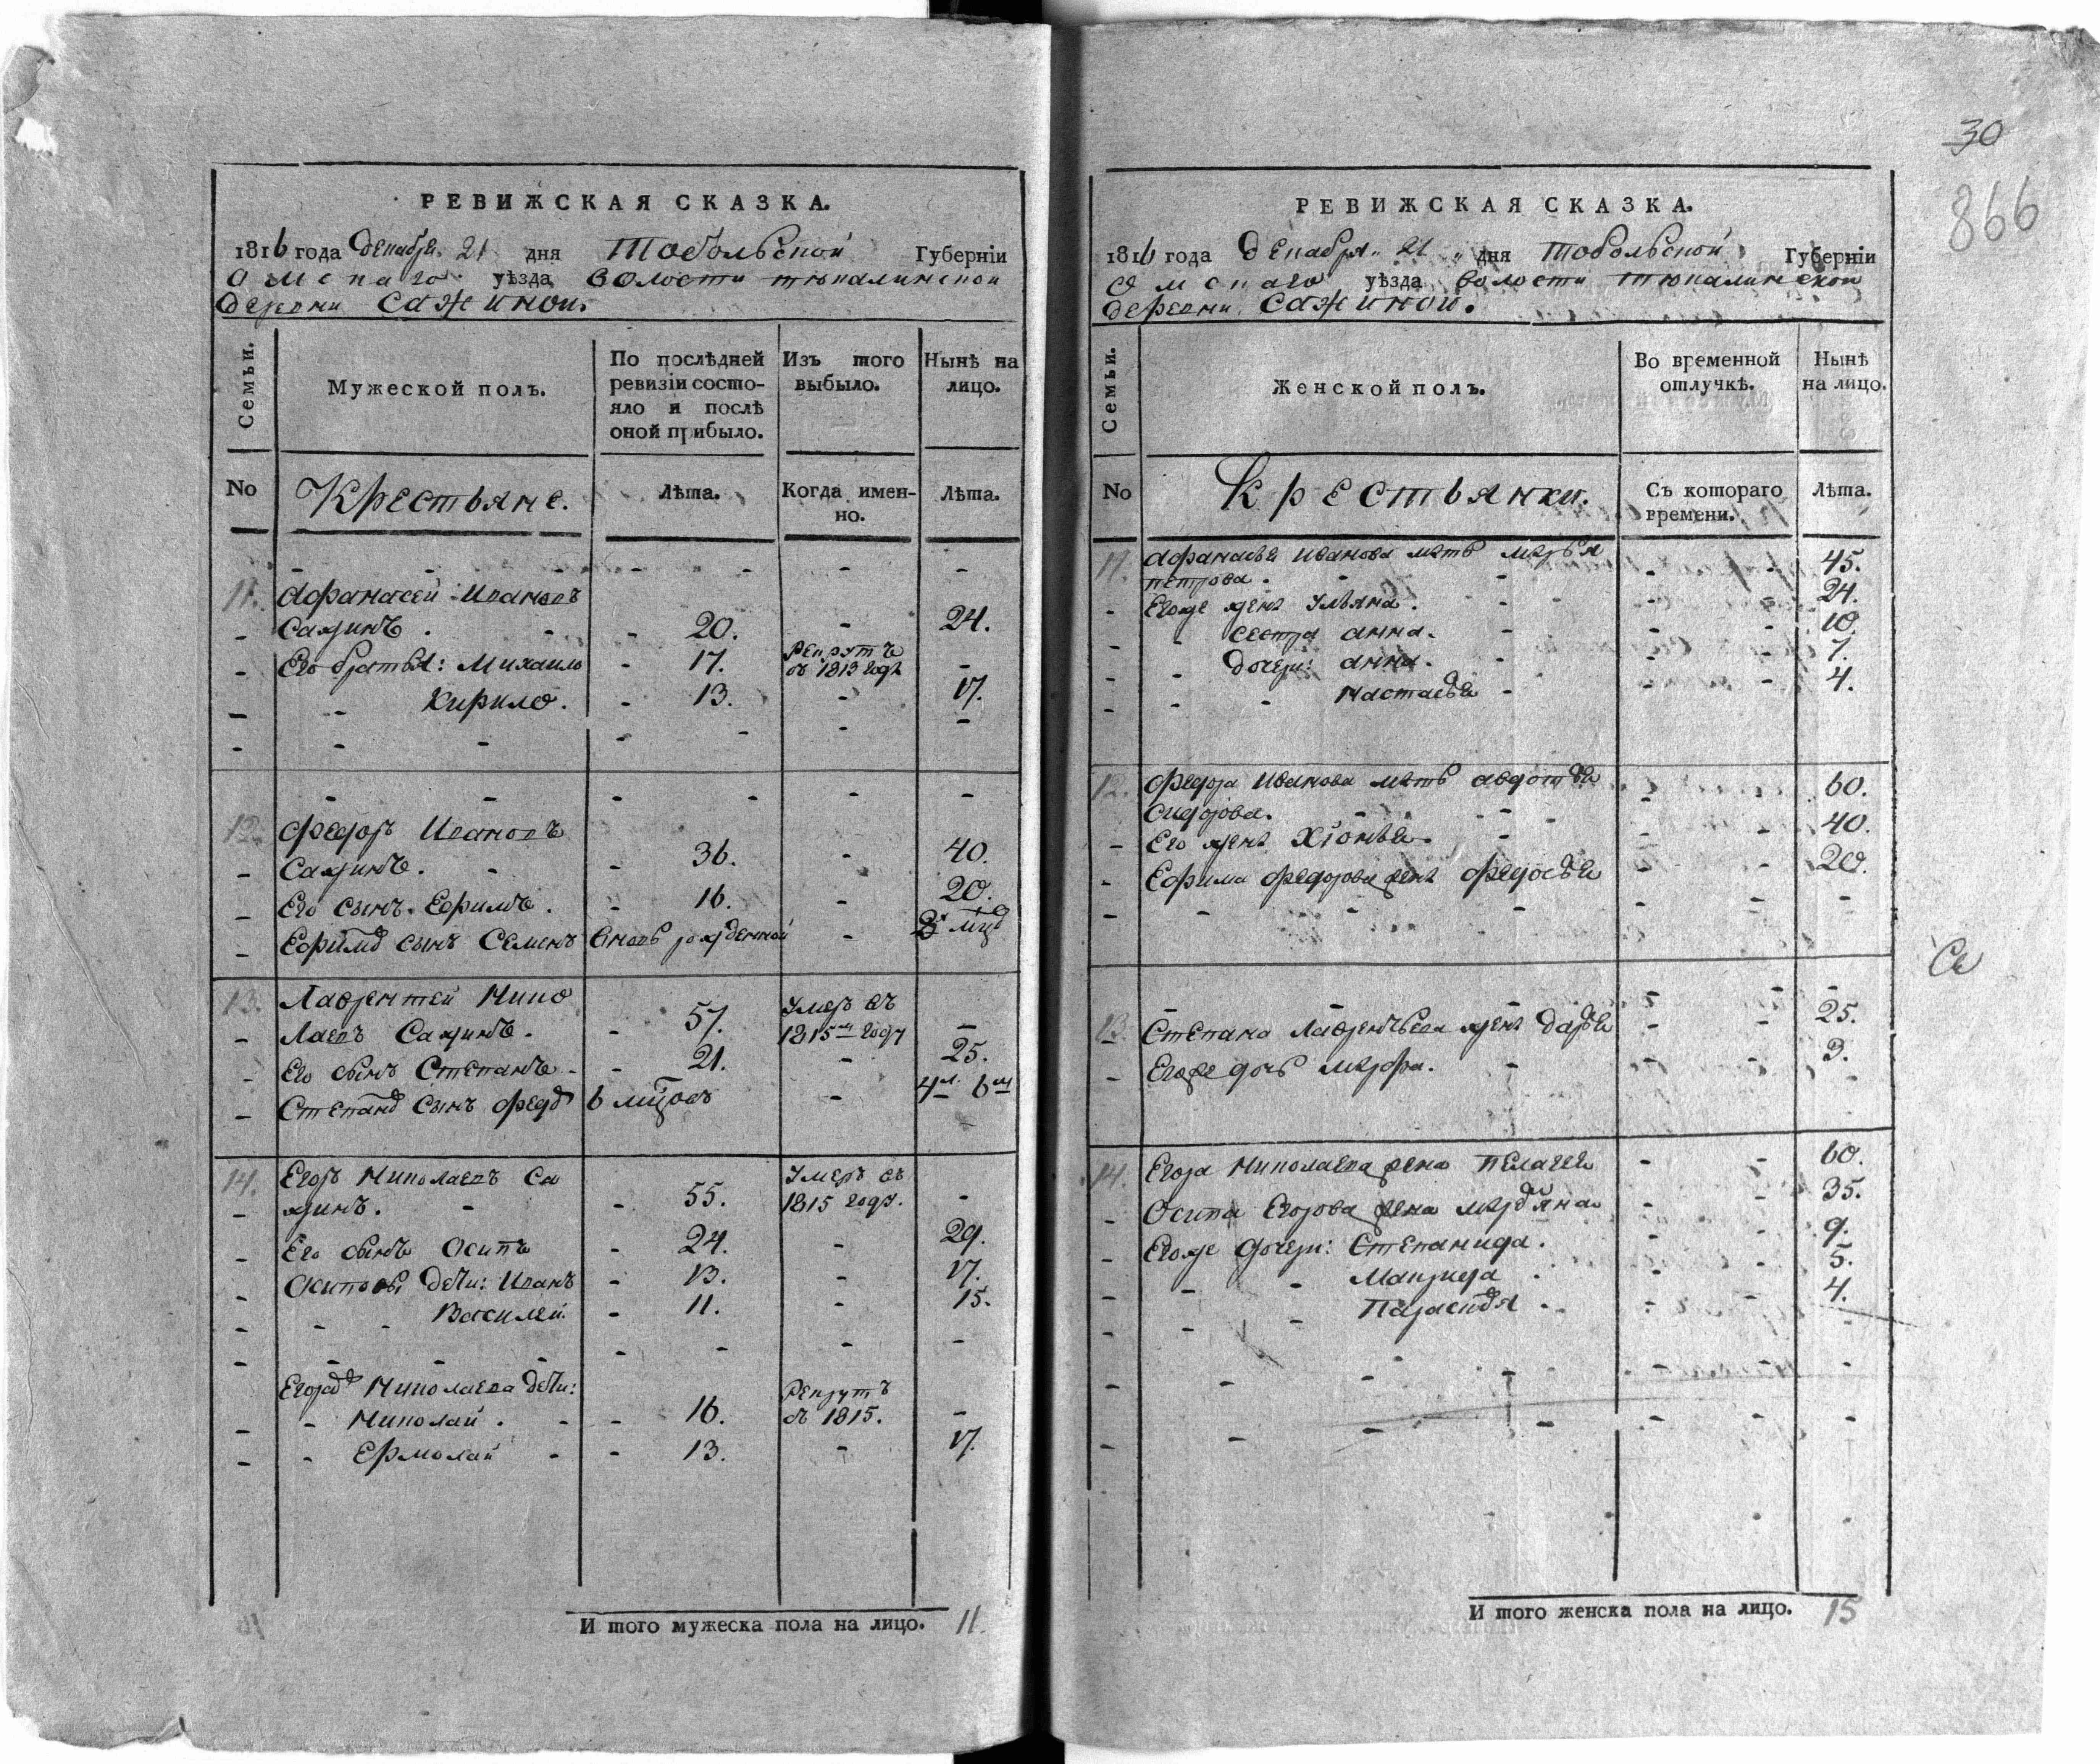 РЕВИЖСКАЯ СКАЗКА.
1816 года Декабря 21 дня Тобольской Губерніи
Омскаго уѣзда волости тюкалинской
деревни Сажиной.
Семьи.
Мужеской полъ.
По послѣдней ревизіи состо-
яло и послѣ
оной прибыло.
Изъ того выбыло.
Нынѣ на лицо.
No
Крестьяне.
Лѣта.
Когда имен-
но.
Лѣта.
11. Афанасей Ивановъ
Сажинъ. - 20. - 24.
Его братья: Михайло - 17. Рекрутъ въ 1813 годѣ -
Кирило. - 13. - 17.
12. Федоръ Ивановъ
Сажинъ. - 36. - 40.
Его сынъ Ефимъ. - 16. - 20.
Ефима сынъ Семенъ вновь рожденной -
13. Лаврентей Нико
лаевъ Сажинъ. - 57. Умеръ въ 1815м году -
Его сынъ Степанъ - 21. - 25.
Степана сынъ Федъ 6 мцовъ - 4л. 6м
14. Егоръ Николаевъ Са
жинъ. - 55. Умеръ въ 1815 году. -
Его сынъ Осипъ - 24. - 29.
Осиповы дети: Иванъ - 13. - 17.
Василей. - 11. - 15.
Егора Николаева дети:
Николай. - 16. Рекрутъ въ 1815. -
Ермолай - 13. - 17.
И того мужеска пола на лицо. 11.
30
866
РЕВИЖСКАЯ СКАЗКА.
1816 года Декабря 21 дня Тобольской Губерніи
Омскаго уѣзда волости тюкалинской
деревни Сажиной.
Семьи.
Женской полъ.
Во временной отлучкѣ.
Нынѣ
на лицо.
No
Крестьянки.
Съ котораго
времени.
Лѣта.
11. Афанасья Иванова мать марья - 45.
петрова.
Егоже жена Ульяна. - 24.
сестра анна. - 10.
дочери: анна. - 7.
настасья - 4.
12. Федора Иванова мать авдотья - 60.
Сидорова.
Его жена Хіонья. - 40.
Ефима Федорова жена Федосья - 20.
13. Степана Лаврентьева жена дарья - 25.
Егоже дочь марфа. - 3.
14. Егора Николаева жена Пелагея - 60.
Осипа Егорова жена марьяна - 35.
Егоже дочери: Степанида. - 9.
Макрида - 5.
Парасковья - 4.
И того женска пола на лицо. 15